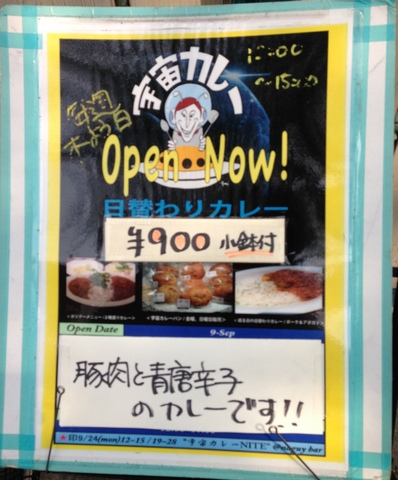 宇宙カレー
12:00
〜15:00
毎週
木よう日
Open Now!
日替わりカレー
¥900 小鉢付
Open Date
9-Sep
豚肉と青唐辛子
のカレーです!!
9/24(mon)12-15/19-28 "宇宙カレーNITE"
bar